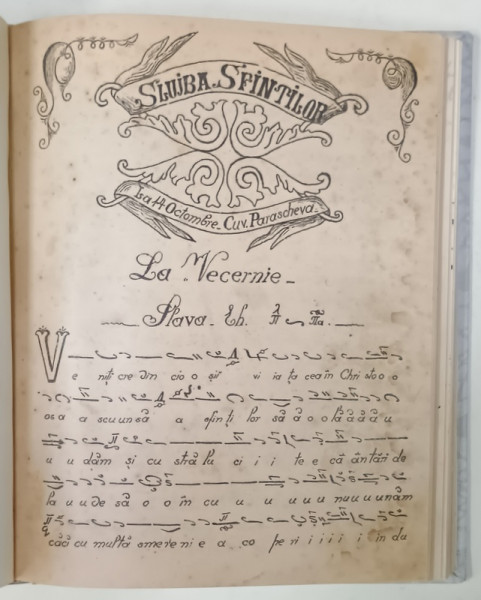 SLUJBA SFINTILOR
La 14 Octombre. Cuv. Parascheva.
La Vecernie
Slava. Eh. Πa.
V e niț cre din cio o și vi ia ța cea în Chri sto o o
o sa a scuun să a sfin ți lor să ă o o lă ă ă ă u
u u dăm și cu stră lu ci i i te e că ân tări de
la u u de să o o îm cu u u u u nu u u unăm
căci cu multă smere ni e a co pe ri i i i i în du